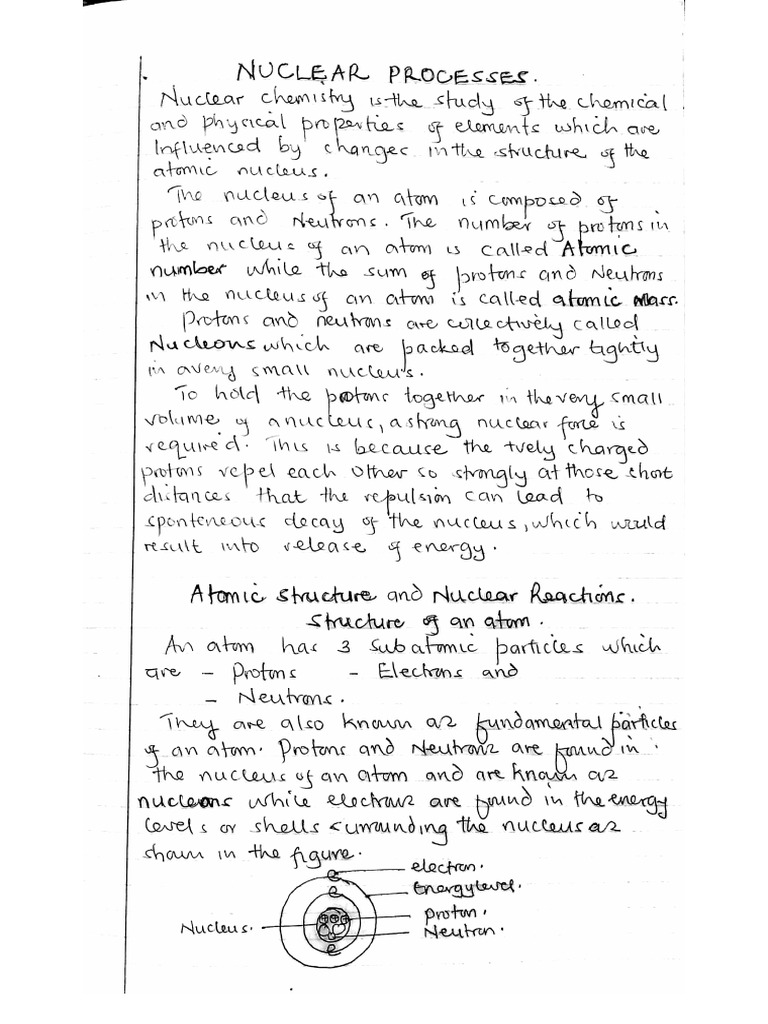 1. NUCLEAR PROCESSES.
Nuclear chemistry is the study of the chemical
and physical properties of elements which are
Influenced by changes in the structure of the
atomic nucleus.
The nucleus of an atom is composed of
protons and Neutrons. The number of protons in
the nucleus of an atom is called Atomic
number while the sum of protons and Neutrons
in the nucleus of an atom is called atomic Mass.
Protons and neutrons are collectively called
Nucleons which are packed together tightly
in a very small nucleus.
To hold the protons together in the very small
volume of a nucleus, a strong nuclear force is
required. This is because the +vely charged
protons repel each other so strongly at those short
distances that the repulsion can lead to
sponteneous decay of the nucleus, which would
result into release of energy.
Atomic structure and Nuclear Reactions.
Structure of an atom.
An atom has 3 subatomic particles which
are - Protons - Electrons and
- Neutrons.
They are also known as fundamental particles
of an atom. Protons and Neutrons are found in
the nucleus of an atom and are known as
nucleons while electrons are found in the energy
levels or shells surrounding the nucleus as
shown in the figure.
electron.
Energy level.
proton.
Nucleus.
Neutron.